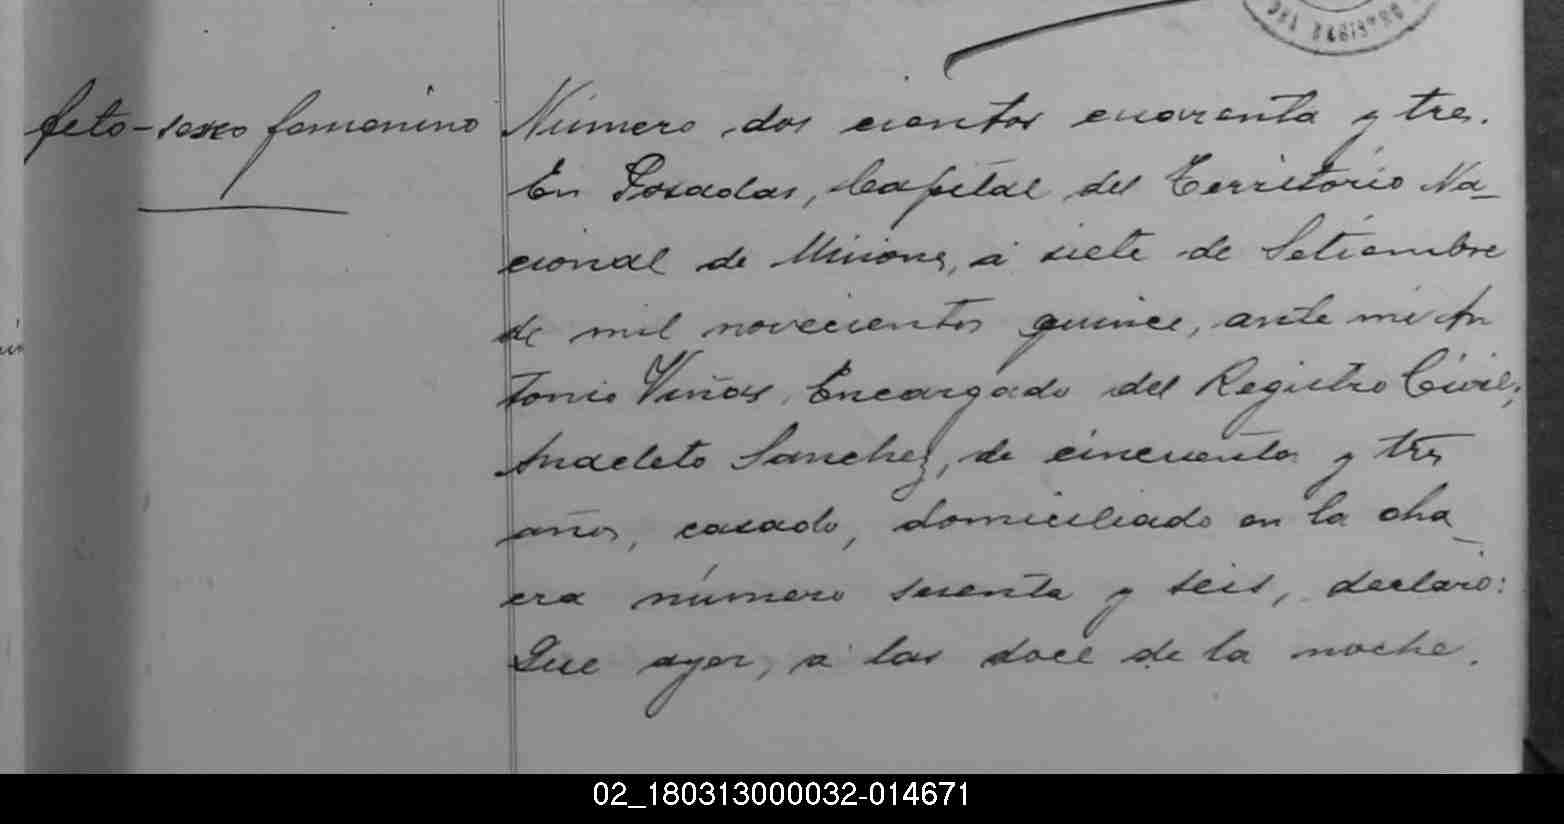 feto-sexo femenino
Número dos cientos cuarenta y tres.
En Posadas, Capital del Territorio Na-
cional de Misiones, á siete de Setiembre
de mil novecientos quince, ante mi An
tonio Viñas, Encargado del Registro Civil,
Anacleto Sanchez, de cincuenta y tres
años, casado, domiciliado en la cha_
cra número sesenta y seis, declaró:
Que ayer, á las doce de la noche.
02_180313000032-014671